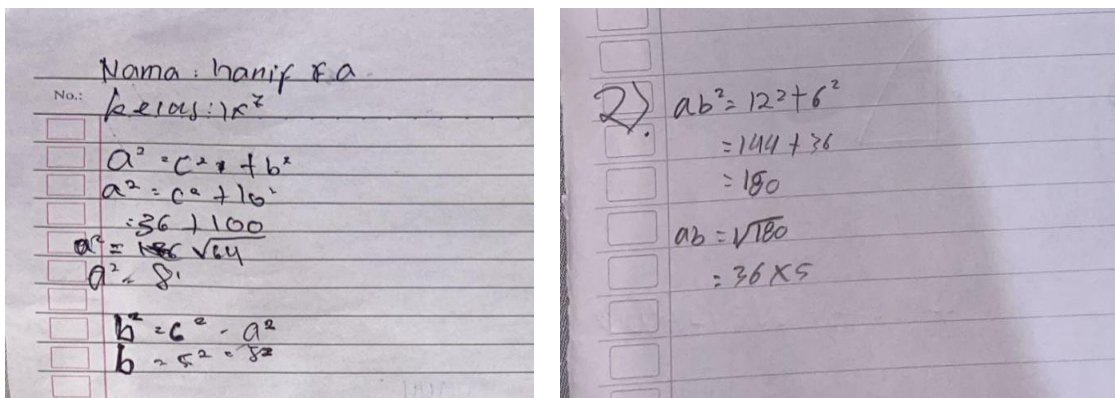 Nama : hanif r a
No.:
kelas : ix⁷
a² = c² + b²
a² = c² + 10²
= 36 + 100
a² = √64
a² = 8
b² = c² - a²
b = 5² - 8²
2). ab² = 12² + 6²
= 144 + 36
= 180
ab = √180
= 36 x 5